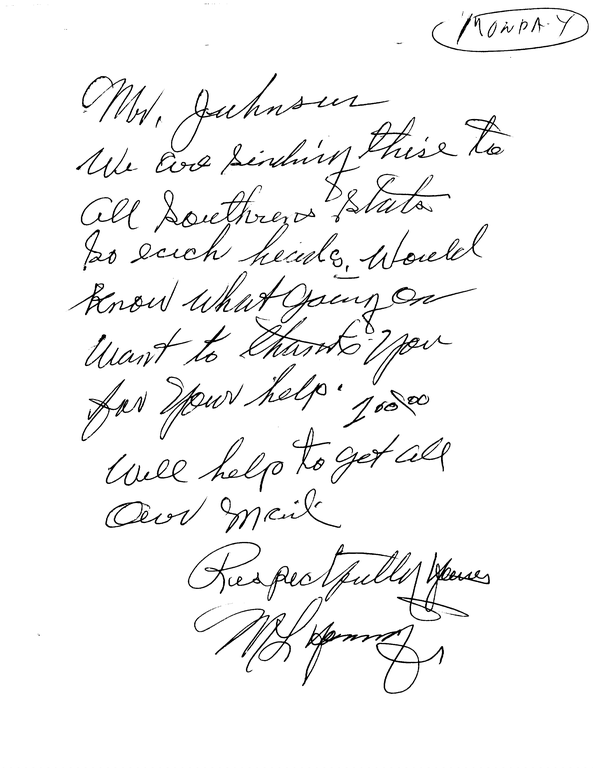 MONDAY
Mr. Johnson
We are sending these to
all Southrens Stats
So each heads. Would
know what going on
Want to thanks you
for your help.
100.00
Will help to get all
Our Mail
Respectfully yours
M L Jr